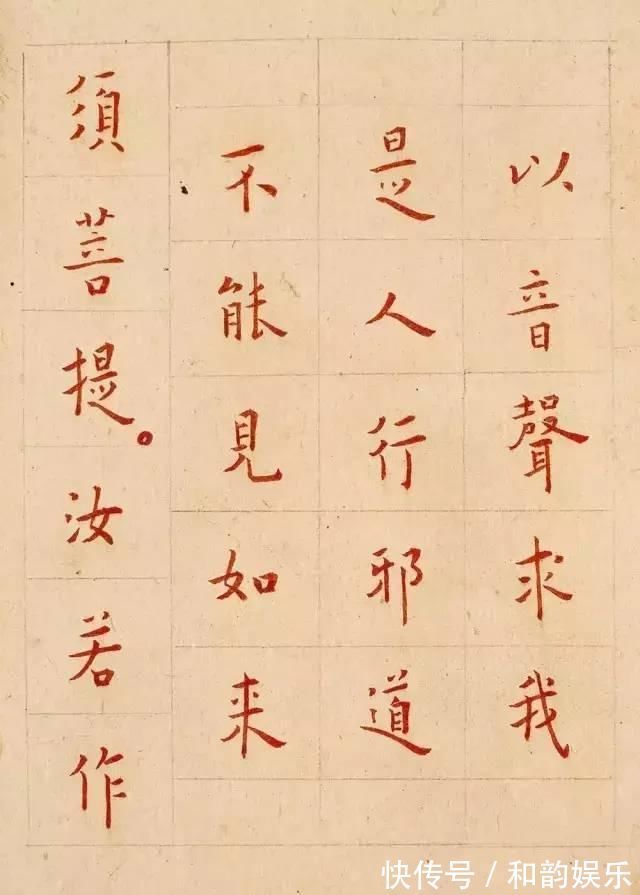 以音聲求我
是人行邪道
不能見如来
須菩提。汝若作
快传号/和韵娱乐